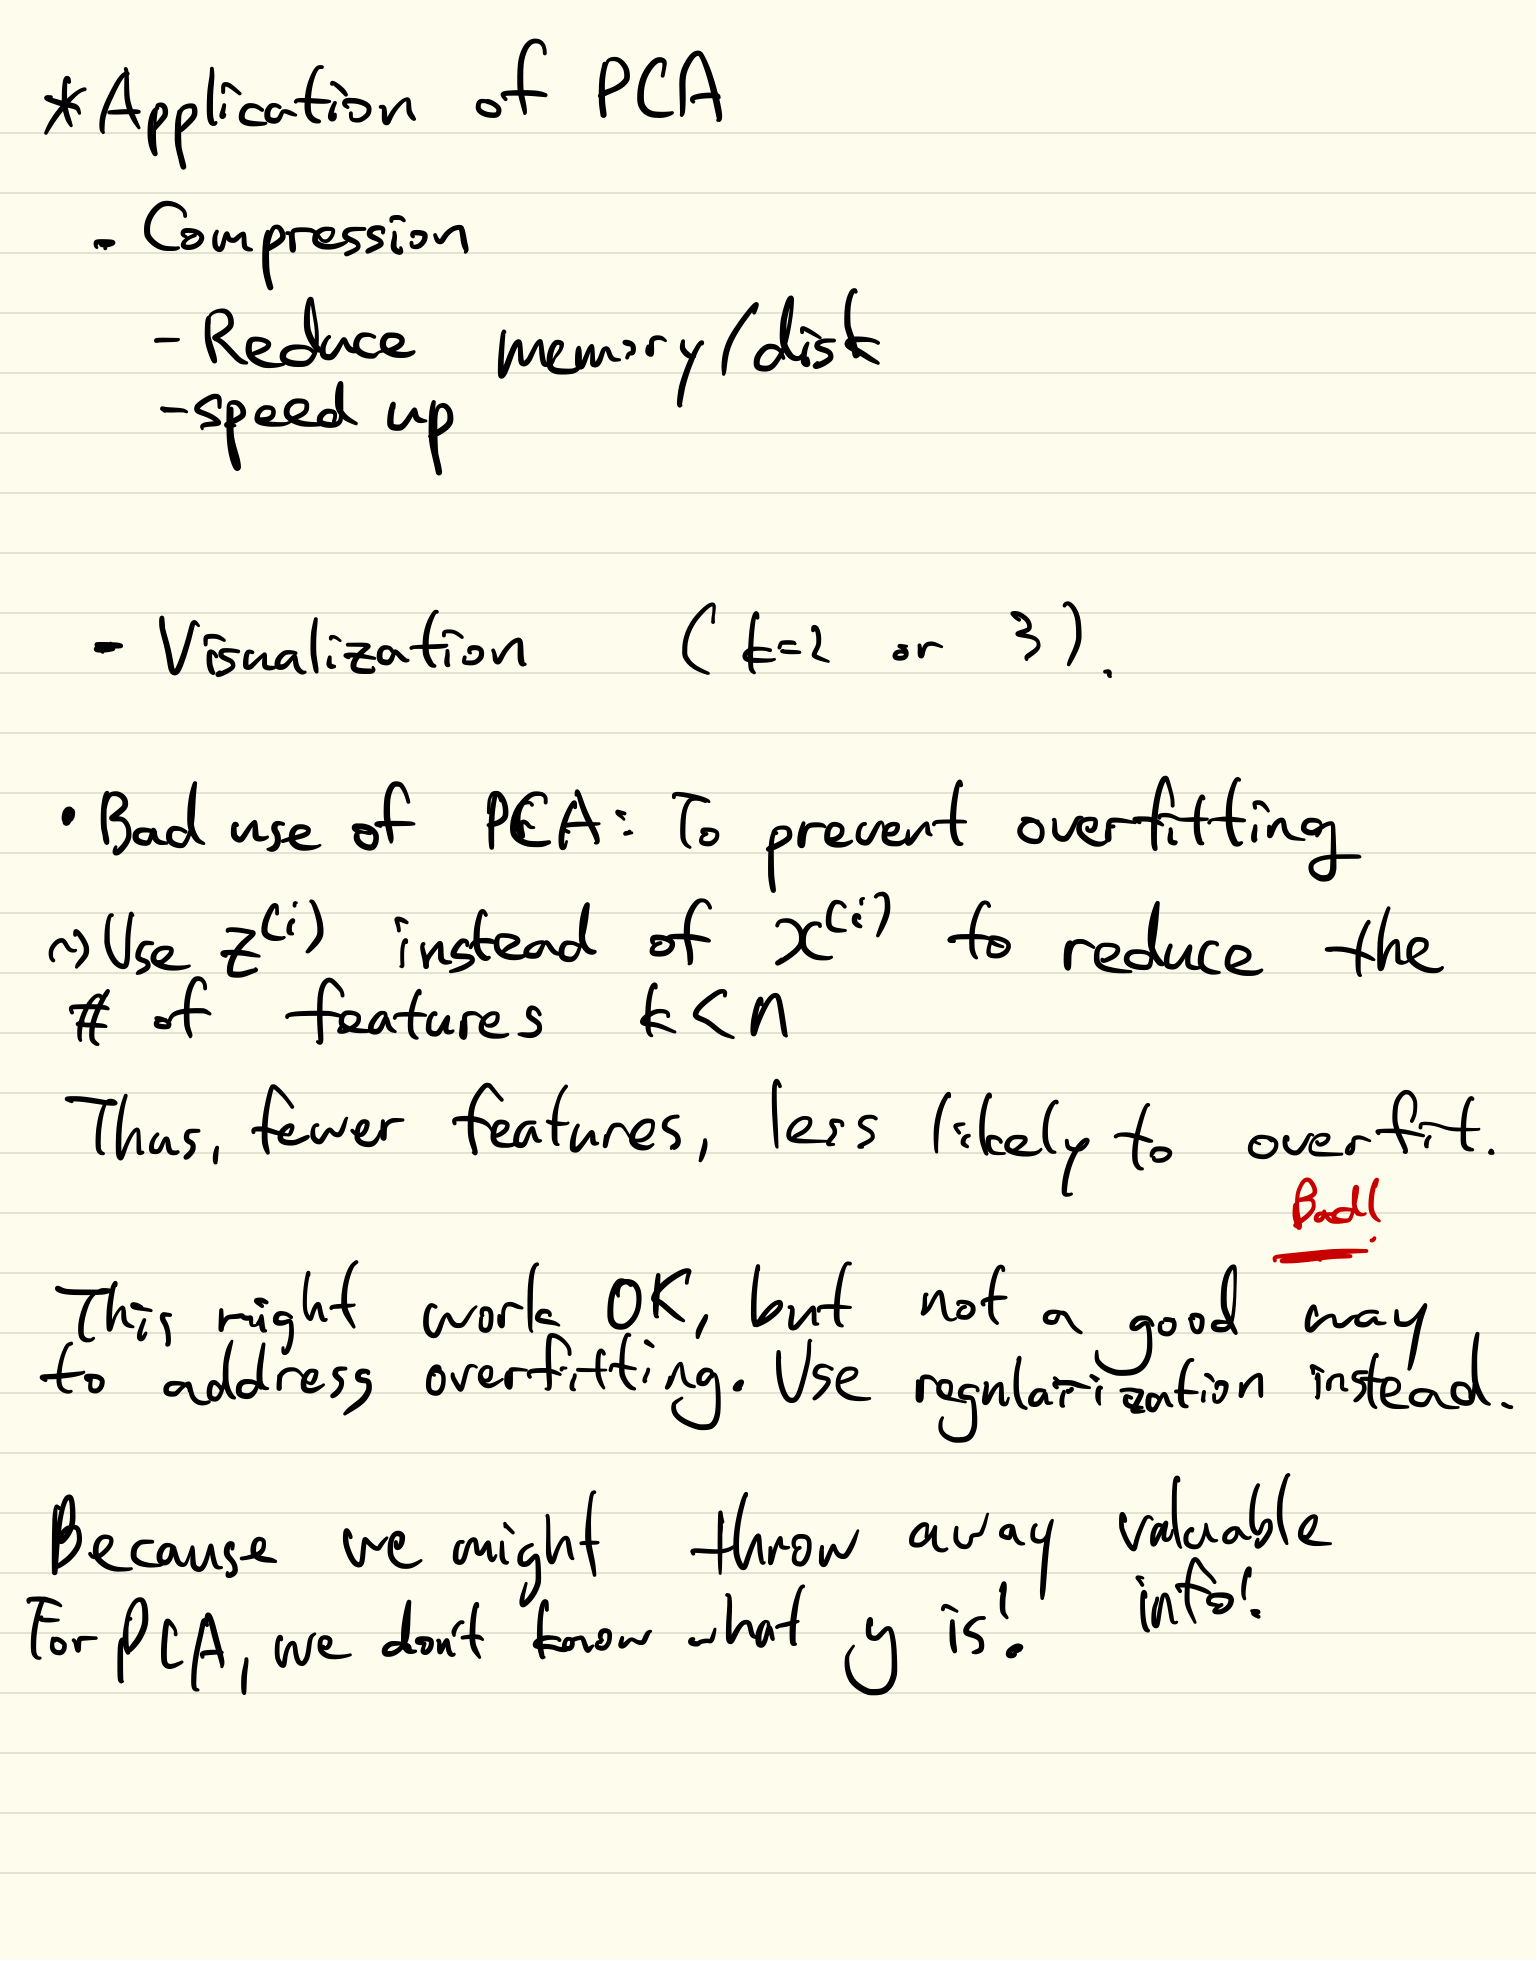 *Application of PCA
- Compression
- Reduce memory/disk
- speed up
- Visualization (k=2 or 3).
• Bad use of PCA: To prevent overfitting
~> Use z^(i) instead of x^(i) to reduce the
# of features k<n
Thus, fewer features, less likely to overfit.
Bad!
This might work OK, but not a good way
to address overfitting. Use regularization instead.
Because we might throw away valuable
info!
For PCA, we don't know what y is!